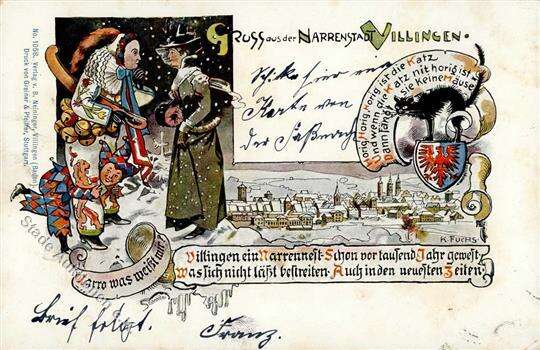 Gruss aus der Narrenstadt Villingen.
No. 1058. Verlag v. B. Nöninger, Villingen (Baden)
Druck von Greiner & Pfeiffer, Stuttgart.
Schike hier eine
Karte von
der Faßnacht
Horig, Horig, Horig ist die Katz
Und wenn die Katz nit horig ist
Dann fängt sie keine Mäuse
K. Fuchs
Narro was weißt mir
Villingen ein Narrennest Schon vor tausend Jahr gewest,
Was sich nicht läßt bestreiten. Auch in den neuesten Zeiten.
Brief folgt. Franz.